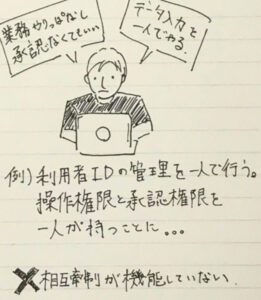 業務やりっぱなし
承認なくてもいい
データ入力を
一人でやる.
例)利用者IDの管理を一人で行う。
操作権限と承認権限を
一人が持つことに...
✗相互牽制が機能していない